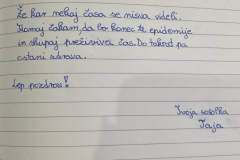 Že kar nekaj časa se nisva videli.
Komaj čakam, da bo konec te epidemije
in skupaj preživiva čas. Do takrat pa
ostani zdrava.
Lep pozdrav!
Tvoja sošolka
Taja